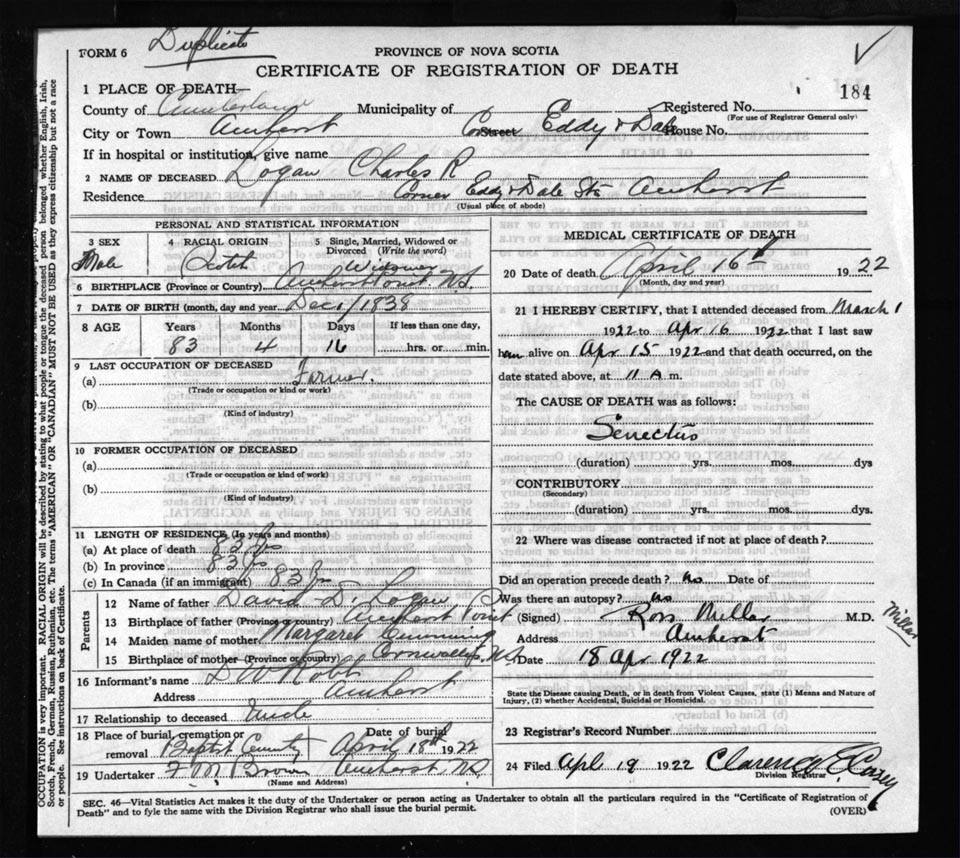 Duplicate
FORM 6
PROVINCE OF NOVA SCOTIA
CERTIFICATE OF REGISTRATION OF DEATH
184
1 PLACE OF DEATH—
County of Cumberland Municipality of Registered No.
(For use of Registrar General only)
City or Town Amherst Street Corner Eddy & Dale House No.
If in hospital or institution, give name
2 NAME OF DECEASED Logan Charles R
Residence Corner Eddy & Dale Sts Amherst
(Usual place of abode)
PERSONAL AND STATISTICAL INFORMATION
3 SEX Male
4 RACIAL ORIGIN Scotch
5 Single, Married, Widowed or Divorced (Write the word) Widower
6 BIRTHPLACE (Province or Country) Amherst Point N.S.
7 DATE OF BIRTH (month, day and year) Dec 1/1838
8 AGE Years Months Days If less than one day,
83 4 16 hrs. or min.
9 LAST OCCUPATION OF DECEASED
(a) Farmer.
(Trade or occupation or kind of work)
(b)
(Kind of industry)
10 FORMER OCCUPATION OF DECEASED
(a)
(Trade or occupation or kind of work)
(b)
(Kind of industry)
11 LENGTH OF RESIDENCE (In years and months)
(a) At place of death 83 yrs
(b) In province 83 yrs
(c) In Canada (if an immigrant) 83 yrs
Parents
12 Name of father David D. Logan
13 Birthplace of father (Province or country) Amherst Point
14 Maiden name of mother Margaret Cumming
15 Birthplace of mother (Province or country) Cornwallis, N.S.
16 Informant's name D W Robb
Address Amherst
17 Relationship to deceased Uncle
18 Place of burial, cremation or removal Date of burial
April 18th 1922
19 Undertaker F M Brown Amherst, N.S.
(Name and Address)
MEDICAL CERTIFICATE OF DEATH
20 Date of death April 16th 1922
(Month, day and year)
21 I HEREBY CERTIFY, that I attended deceased from March 1
1922 to Apr 16 1922 that I last saw
him alive on Apr 15 1922 and that death occurred, on the
date stated above, at 11 A.m.
The CAUSE OF DEATH was as follows:
Senectus
(duration) yrs. mos. dys
CONTRIBUTORY
(Secondary)
(duration) yrs. mos. dys.
22 Where was disease contracted if not at place of death?
Did an operation precede death? No Date of
Was there an autopsy? No
(Signed) Ross Millar M.D.
Millar
Address Amherst
Date 18 Apr 1922
State the Disease causing Death, or in death from Violent Causes, state (1) Means and Nature of
Injury, (2) whether Accidental, Suicidal or Homicidal.
23 Registrar's Record Number
24 Filed Apl. 19 1922 Clarence E. Casey
Division Registrar
SEC. 46—Vital Statistics Act makes it the duty of the Undertaker or person acting as Undertaker to obtain all the particulars required in the "Certificate of Registration of
Death" and to fyle the same with the Division Registrar who shall issue the burial permit.
(OVER)
OCCUPATION is very important. RACIAL ORIGIN will be described by stating to what people or tongue the deceased person belonged whether English, Irish,
Scotch, French, German, Russian, Ruthenian, etc. The terms "AMERICAN" OR "CANADIAN" MUST NOT BE USED as they express citizenship but not a race
or people. See instructions on back of Certificate.